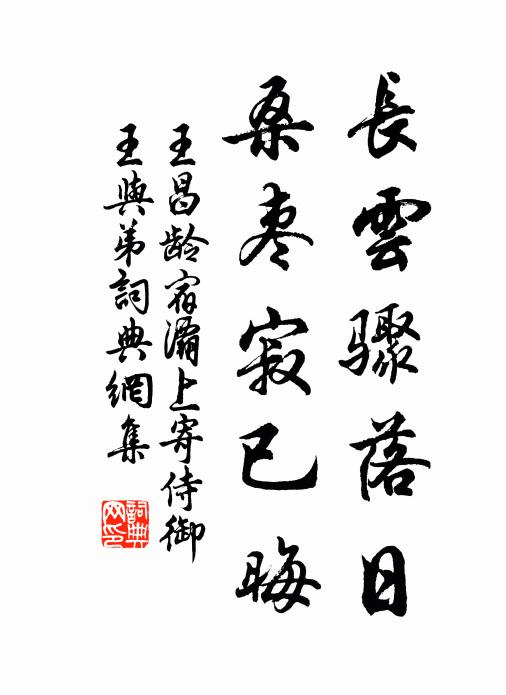 長雲驟落日
桑枣寂已晦
王昌龄宿灞上寄侍御
王與弟詞典網集
詞典
网印